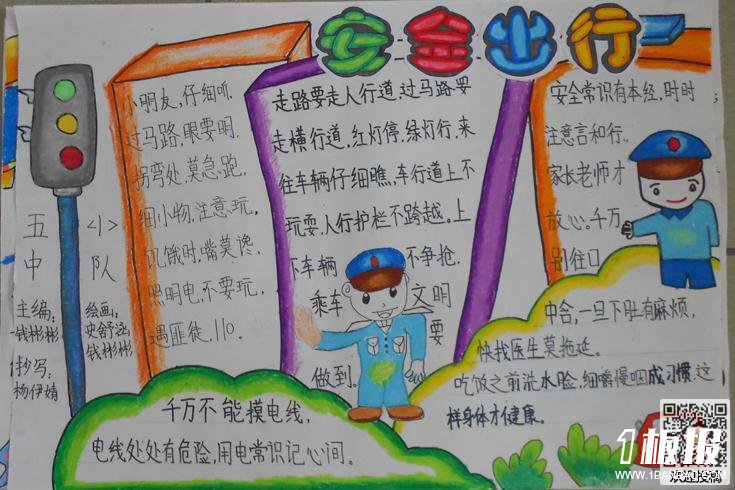 安全出行
五〈1〉
中队
主编:
钱彬彬
绘画:
史舒涵
钱彬彬
抄写:
杨伊婧
小朋友,仔细听.
过马路,眼要明.
拐弯处,莫急跑,
细小物,注意玩,
饥饿时,嘴莫馋.
照明电,不要玩.
遇匪徒,110.
走路要走人行道,过马路要
走横行道,红灯停,绿灯行,来
往车辆仔细瞧,车行道上不
玩耍.人行护栏不跨越。上
下车辆不争抢.
乘车文明
要
做到。
安全常识有本经,时时
注意言和行。
家长老师才
放心。千万
别往口
中含,一旦下肚有麻烦,
快找医生莫拖延。
吃饭之前洗水脸,细嚼慢咽成习惯.这
样身体才健康。
千万不能摸电线,
电线处处有危险,用电常识记心间。
1板报
WWW.1BANBAO.COM
欢迎投稿